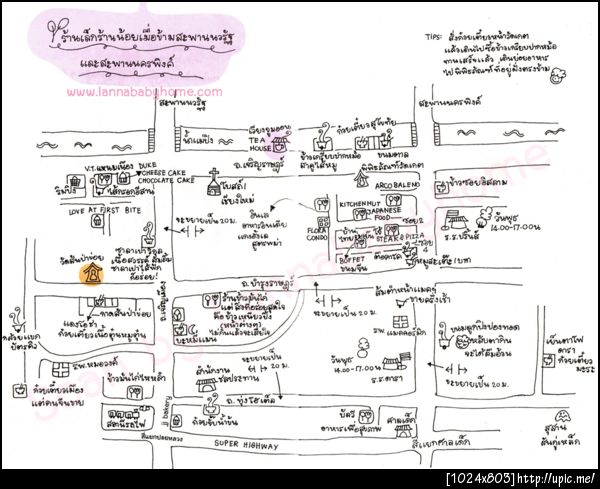 ร้านเล็กร้านน้อยเมื่อข้ามสะพานนวรัฐ
และสะพานนครพิงค์
www.lannababyhome.com
TIPS: สั่งก๋วยเตี๋ยวหน้าวัดเกต
แล้วเดินไปซื้อข้าวเกรียบปากหม้อ
ทานเสร็จแล้ว เดินย่อยอาหาร
ไปพิพิธภัณฑ์ที่อยู่ฝั่งตรงข้าม
สะพานนวรัฐ
สะพานนครพิงค์
น้ำแม่ปิง
เวียงจูมออน
TEA
HOUSE
ก๋วยเตี๋ยวสุโขทัย
ข้าวเกรียบปากหม้อ
สาคูไส้หมู
ขนมตาล
พิพิธภัณฑ์วัดเกต
ถ.เจริญราษฎร์
V.T. แหนมเนือง
DUKE
CHEESE CAKE
CHOCOLATE CAKE
ริมปิง
ไส้กรอกอีสาน
LOVE AT FIRST BITE
โบสถ์1
เชียงใหม่
ARCOBALENO
ข้าวซอยอิสลาม
KITCHEN HUT
JAPANESE
FOOD
FLORA
CONDO
บ้าน
ไทยขนมจีน
ซอย2
STEAK & PIZZA
BUFFET
ขนมจีน
ซอย1
หมูสะเต๊ะ1บาท
วันพุธ
14.00-17.00น.
ร.ร.ปรินส์
จะขยายเป็น 20 ม.
วัดสันป่าข่อย
คือร่อย!
ถ.บำรุงราษฎร์
กาดสันป่าข่อย
แต่คนจีนขาย
ร้านข้าวมันไก่
(หน้าต่างๆ)
บะหมี่แมน
จะขยายเป็น
20 ม.
ส้มตำหน้าแมคฯ
ขายตรงเช้า
รพ.แมคคอร์มิค
วันพุธ
14.00-17.00น.
ร.ร.ดารา
ขนมลูกปิงปองทอด
หลับตาคิน
จะได้ลืมอ้วน
จะขยายเป็น 20 ม.
เย็นตาโฟ
ดารา
ก๋วยเตี๋ยว
มะระ
ร.พ.หมอวงค์
ก๋วยเตี๋ยวเมือง
ข้าวมันไก่ไหหลำ
สถานีรถไฟ
สำนักงาน
ชลประทาน
ถ. ทุ่งโฮเต็ล
jj bakery
ก๋วยจั๊บน้ำข้น
ปัตวี
อาหารเพื่อสุขภาพ
ศาลเด็ก
สี่แยกศาลเด็ก
สี่แยกปอยหลวง
SUPER HIGHWAY
สุสาน
สันกู่เหล็ก
[1024x803]http://upic.me/